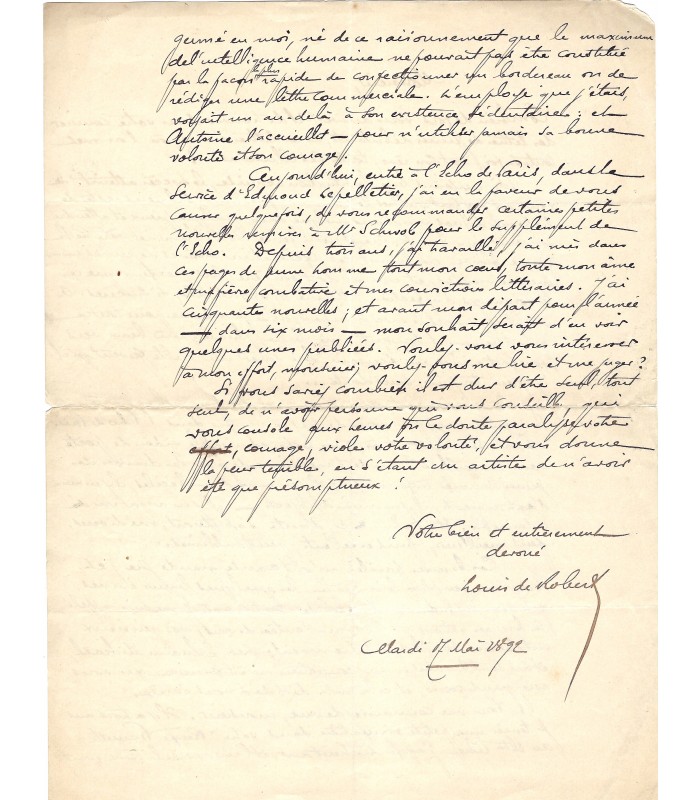 germé en moi, né de ce raisonnement que le maximum
de l'intelligence humaine ne pouvait pas être constitué
par la façon la plus rapide de confectionner un bordereau ou de
rédiger une lettre commerciale. L'employé que j'étais,
voyait un au-delà à son existence sédentaire ; et
Antoine l'accueillit — pour n'utiliser jamais sa bonne
volonté et son courage.
Aujourd'hui, entré à l'Echo de Paris, dans le
service d'Edmond Lepelletier, j'ai eu la faveur de vous
causer quelquefois, de vous recommander certaines petites
nouvelles remises à Mr Schwob pour le supplément de
l'Echo. Depuis trois ans, j'ai travaillé, j'ai mis dans
ces pages de jeune homme tout mon cœur, toute mon âme
et ma fièvre combative et mes convictions littéraires. J'ai
cinquante nouvelles ; et avant mon départ pour l'armée
— dans six mois — mon souhait serait d'en voir
quelques unes publiées. Voulez-vous vous intéresser
à mon effort, monsieur, voulez-vous me lire et me juger ?
Si vous saviez combien il est dur d'être seul, tout
seul, de n'avoir personne qui vous conseille, qui
vous console aux heures où le doute paralyse votre
effort, courage, viole votre volonté, et vous donne
la peur terrible, en s'étant cru artiste de n'avoir
été que présomptueux !
Votre bien et entièrement
dévoué
Louis de Robert
Mardi 17 Mai 1892